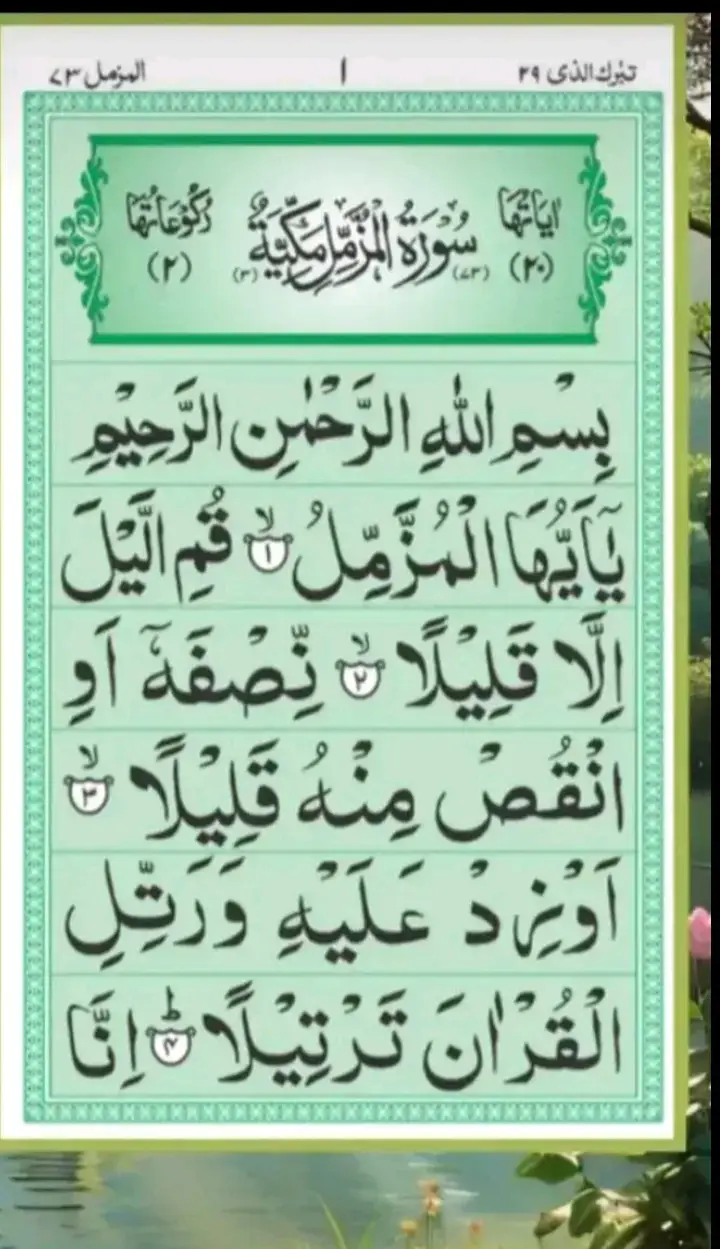 تبٰرك الذی ٢٩ ١ المزمل ٧٣
اٰیَاتُهَا (٢٠) سُوْرَةُ الْمُزَّمِّلِ مَكِّیَّةٌ (٧٣) (٣) رُكُوْعَاتُهَا (٢)
بِسْمِ اللّٰهِ الرَّحْمٰنِ الرَّحِیْمِ
یٰۤاَیُّهَا الْمُزَّمِّلُ ۙ﴿١﴾ قُمِ الَّیْلَ
اِلَّا قَلِیْلًا ۙ﴿٢﴾ نِّصْفَهٗۤ اَوِ
انْقُصْ مِنْهُ قَلِیْلًا ۙ﴿٣﴾
اَوْ زِدْ عَلَیْهِ وَ رَتِّلِ
الْقُرْاٰنَ تَرْتِیْلًا ؕ﴿۴﴾ اِنَّا